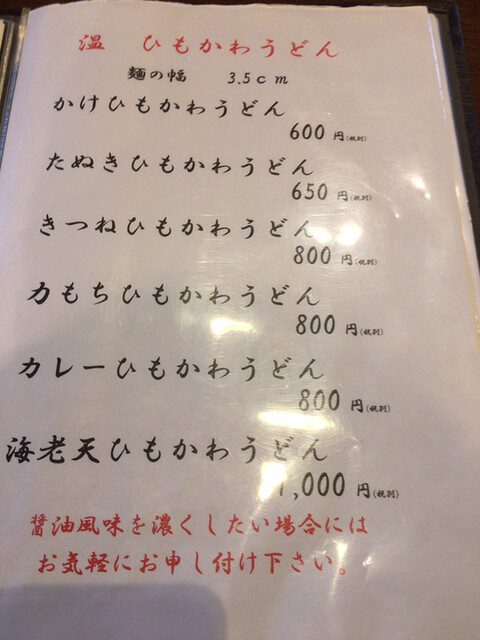 温 ひもかわうどん
麺の幅 3.5cm
かけひもかわうどん
600 円(税別)
たぬきひもかわうどん
650 円(税別)
きつねひもかわうどん
800 円(税別)
力もちひもかわうどん
800 円(税別)
カレーひもかわうどん
800 円(税別)
海老天ひもかわうどん
1,000 円(税別)
醤油風味を濃くしたい場合には
お気軽にお申し付け下さい。